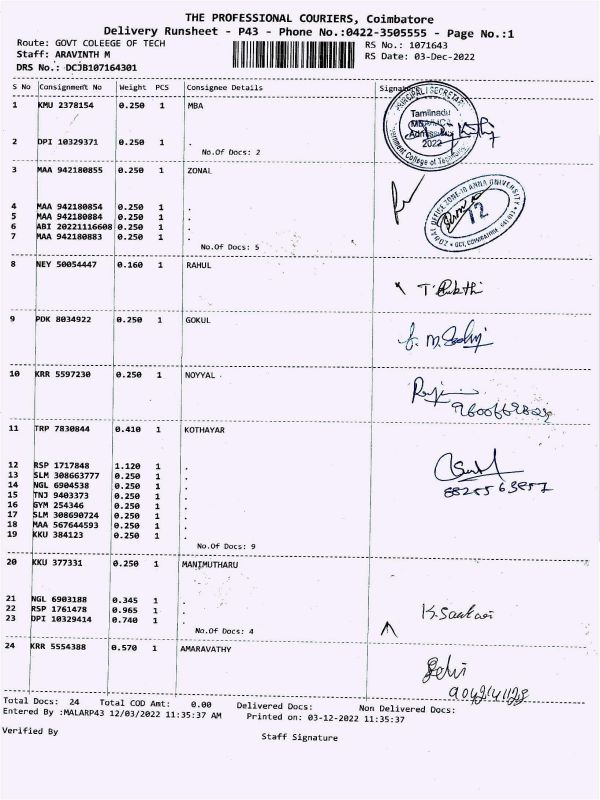 THE PROFESSIONAL COURIERS, Coimbatore
Delivery Runsheet - P43 - Phone No.:0422-3505555 - Page No.:1
Route: GOVT COLEEGE OF TECH
RS No.: 1071643
Staff: ARAVINTH M
RS Date: 03-Dec-2022
DRS No.: DCJB107164301
S No Consignment No Weight PCS Consignee Details Signature
1 KMU 2378154 0.250 1 MBA
2 DPI 10329371 0.250 1 .
No.Of Docs: 2
Tamilnadu
Admissions
2022
3 MAA 942180855 0.250 1 ZONAL
4 MAA 942180854 0.250 1 .
5 MAA 942180884 0.250 1 .
6 ABI 20221116608 0.250 1 .
7 MAA 942180883 0.250 1 .
No.Of Docs: 5
12
8 NEY 50054447 0.160 1 RAHUL
9 PDK 8034922 0.250 1 GOKUL
10 KRR 5597230 0.250 1 NOYYAL
11 TRP 7830844 0.410 1 KOTHAYAR
12 RSP 1717848 1.120 1 .
13 SLM 308663777 0.250 1 .
14 NGL 6904538 0.250 1 .
15 TNJ 9403373 0.250 1 .
16 GYM 254346 0.250 1 .
17 SLM 308690724 0.250 1 .
18 MAA 567644593 0.250 1 .
19 KKU 384123 0.250 1 .
No.Of Docs: 9
20 KKU 377331 0.250 1 MANIMUTHARU
21 NGL 6903188 0.345 1 .
22 RSP 1761478 0.965 1 .
23 DPI 10329414 0.740 1 .
No.Of Docs: 4
24 KRR 5554388 0.570 1 AMARAVATHY
Total Docs: 24 Total COD Amt: 0.00 Delivered Docs: Non Delivered Docs:
Entered By :MALARP43 12/03/2022 11:35:37 AM Printed on: 03-12-2022 11:35:37
Verified By
Staff Signature